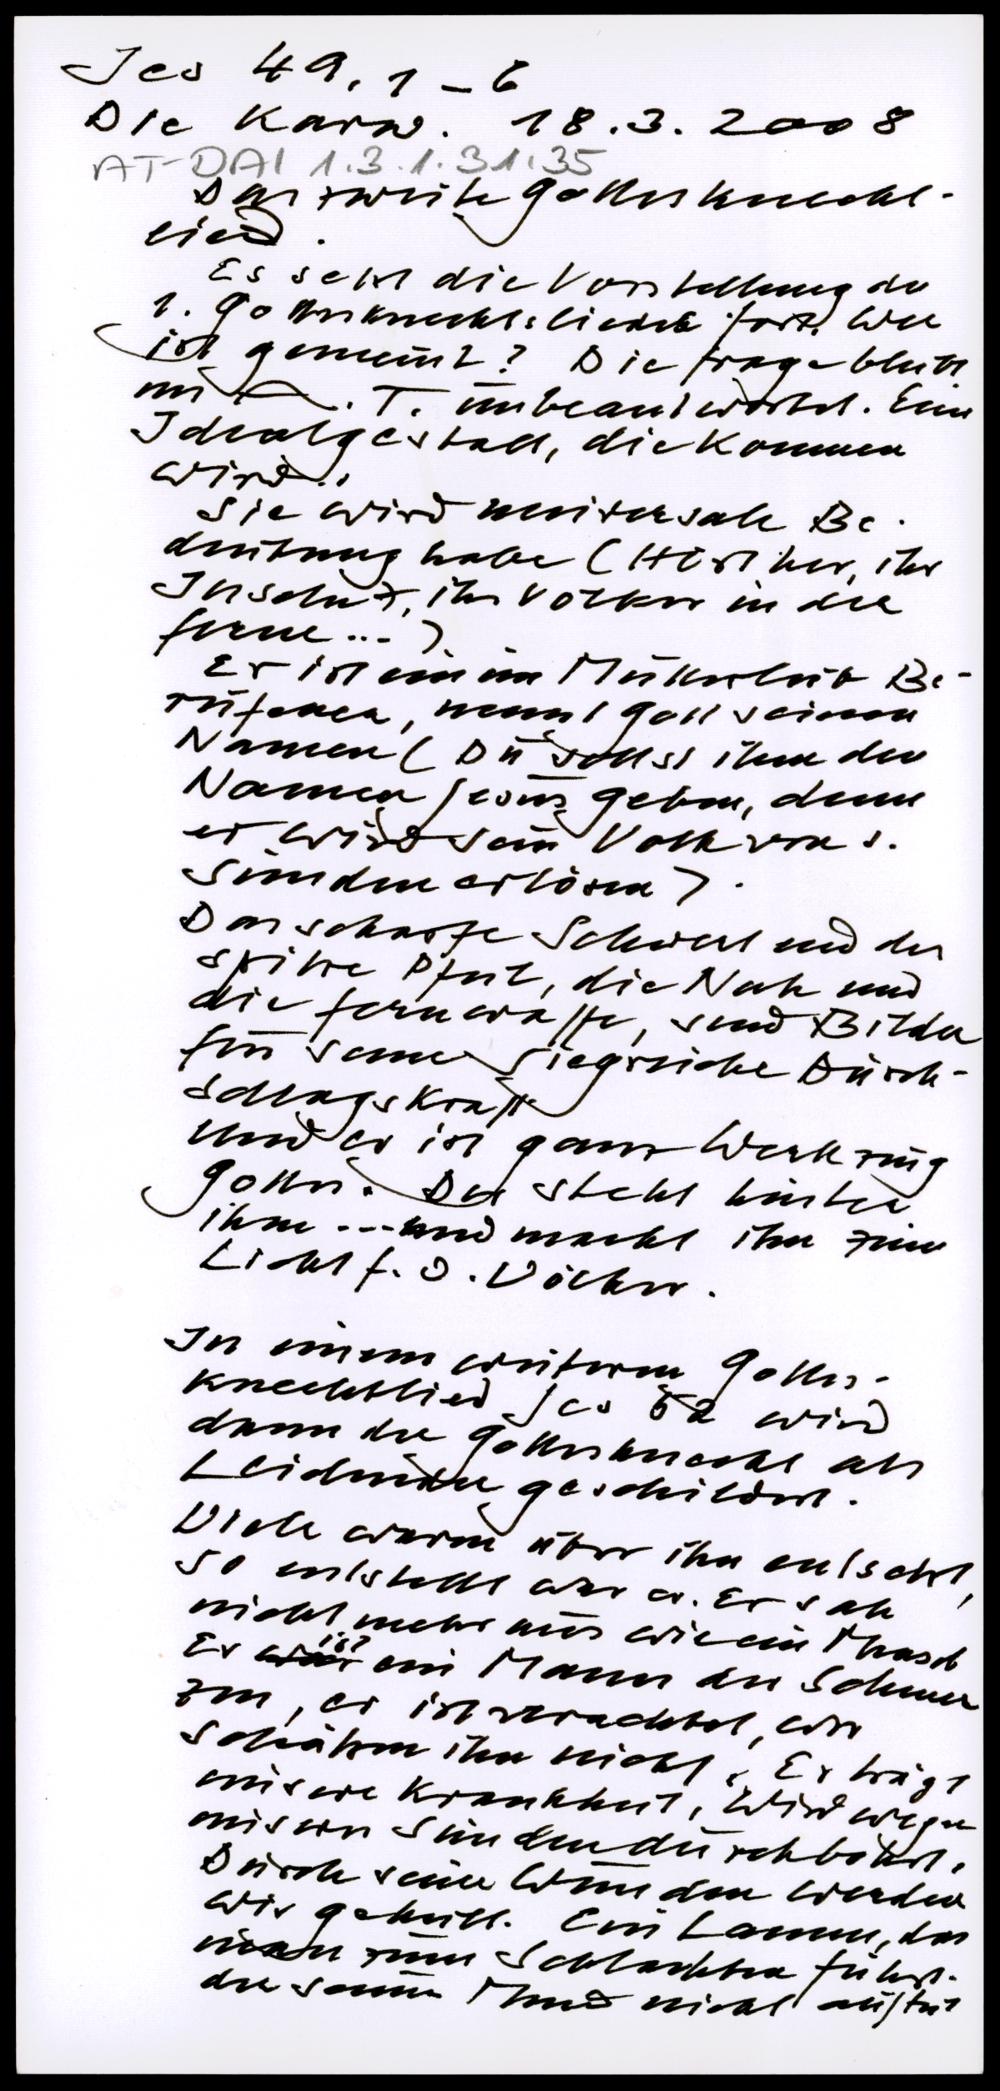 Jes 49, 1–6
Die Karw. 18.3.2008
AT-DAI 1.3.1.31.35
Das zweite Gottesknecht-
lied.
Es setzt die Vorstellung des
1. Gottesknechtsliedes fort. Wer
ist gemeint? Die Frage bleibt
im A. T. unbeantwortet. Eine
Idealgestalt, die kommen
wird.
Sie wird universale Be-
deutung habe (Hört her, ihr
Inseln, ihr Völker in der
Ferne ...)
Er ist ein im Mutterleib Be-
rufener, nennt Gott seinen
Namen (Du sollst ihm den
Namen Jesus geben, denn
er wird sein Volk von s.
Sünden erlösen).
Das scharfe Schwert und der
spitze Pfeil, die Nah und
die Fernwaffe, sind Bilder
für seine siegreiche Durch-
schlagskraft
Und er ist ganz Werkzeug
Gottes. Der steht hinter
ihm ... und macht ihn zum
Licht f. d. Völker.
In einem weiteren Gottes-
knechtlied Jes 52 wird
dann der Gottesknecht als
Leidender geschildert.
Viele waren über ihn entsetzt,
so entstellt war er. Er sah
nicht mehr aus wie ein Mensch
Er ist ein Mann der Schmer
zen, er ist verachtet, wir
schätzen ihn nicht. Er trägt
unsere Krankheit, Wird wegen
unseren Sünden durchbohrt.
Durch seine Wunden werden
wir geheilt. Ein Lamm, das
man zum Schlachten führt.
der seinen Mund nicht auftut